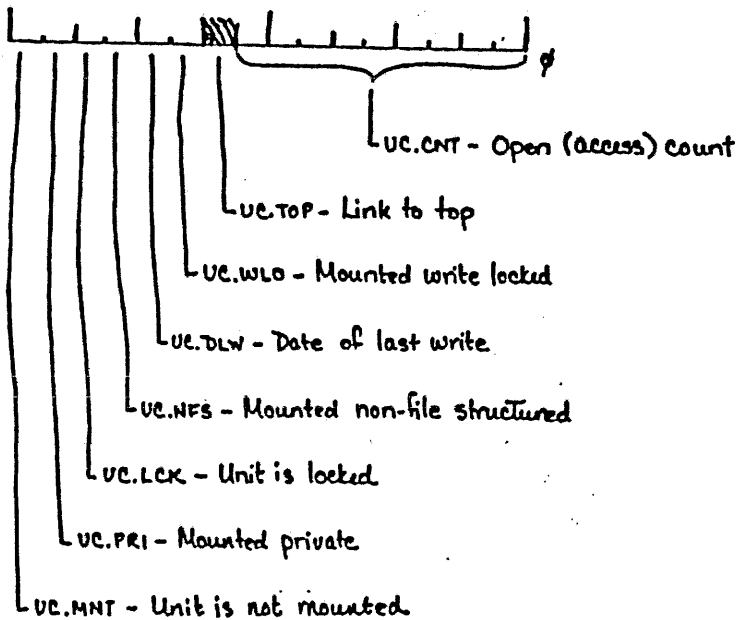 ø
UC.CNT - Open (access) count
UC.TOP - Link to top
UC.WLO - Mounted write locked
UC.DLW - Date of last write
UC.NFS - Mounted non-file structured
UC.LCK - Unit is locked
UC.PRI - Mounted private
UC.MNT - Unit is not mounted